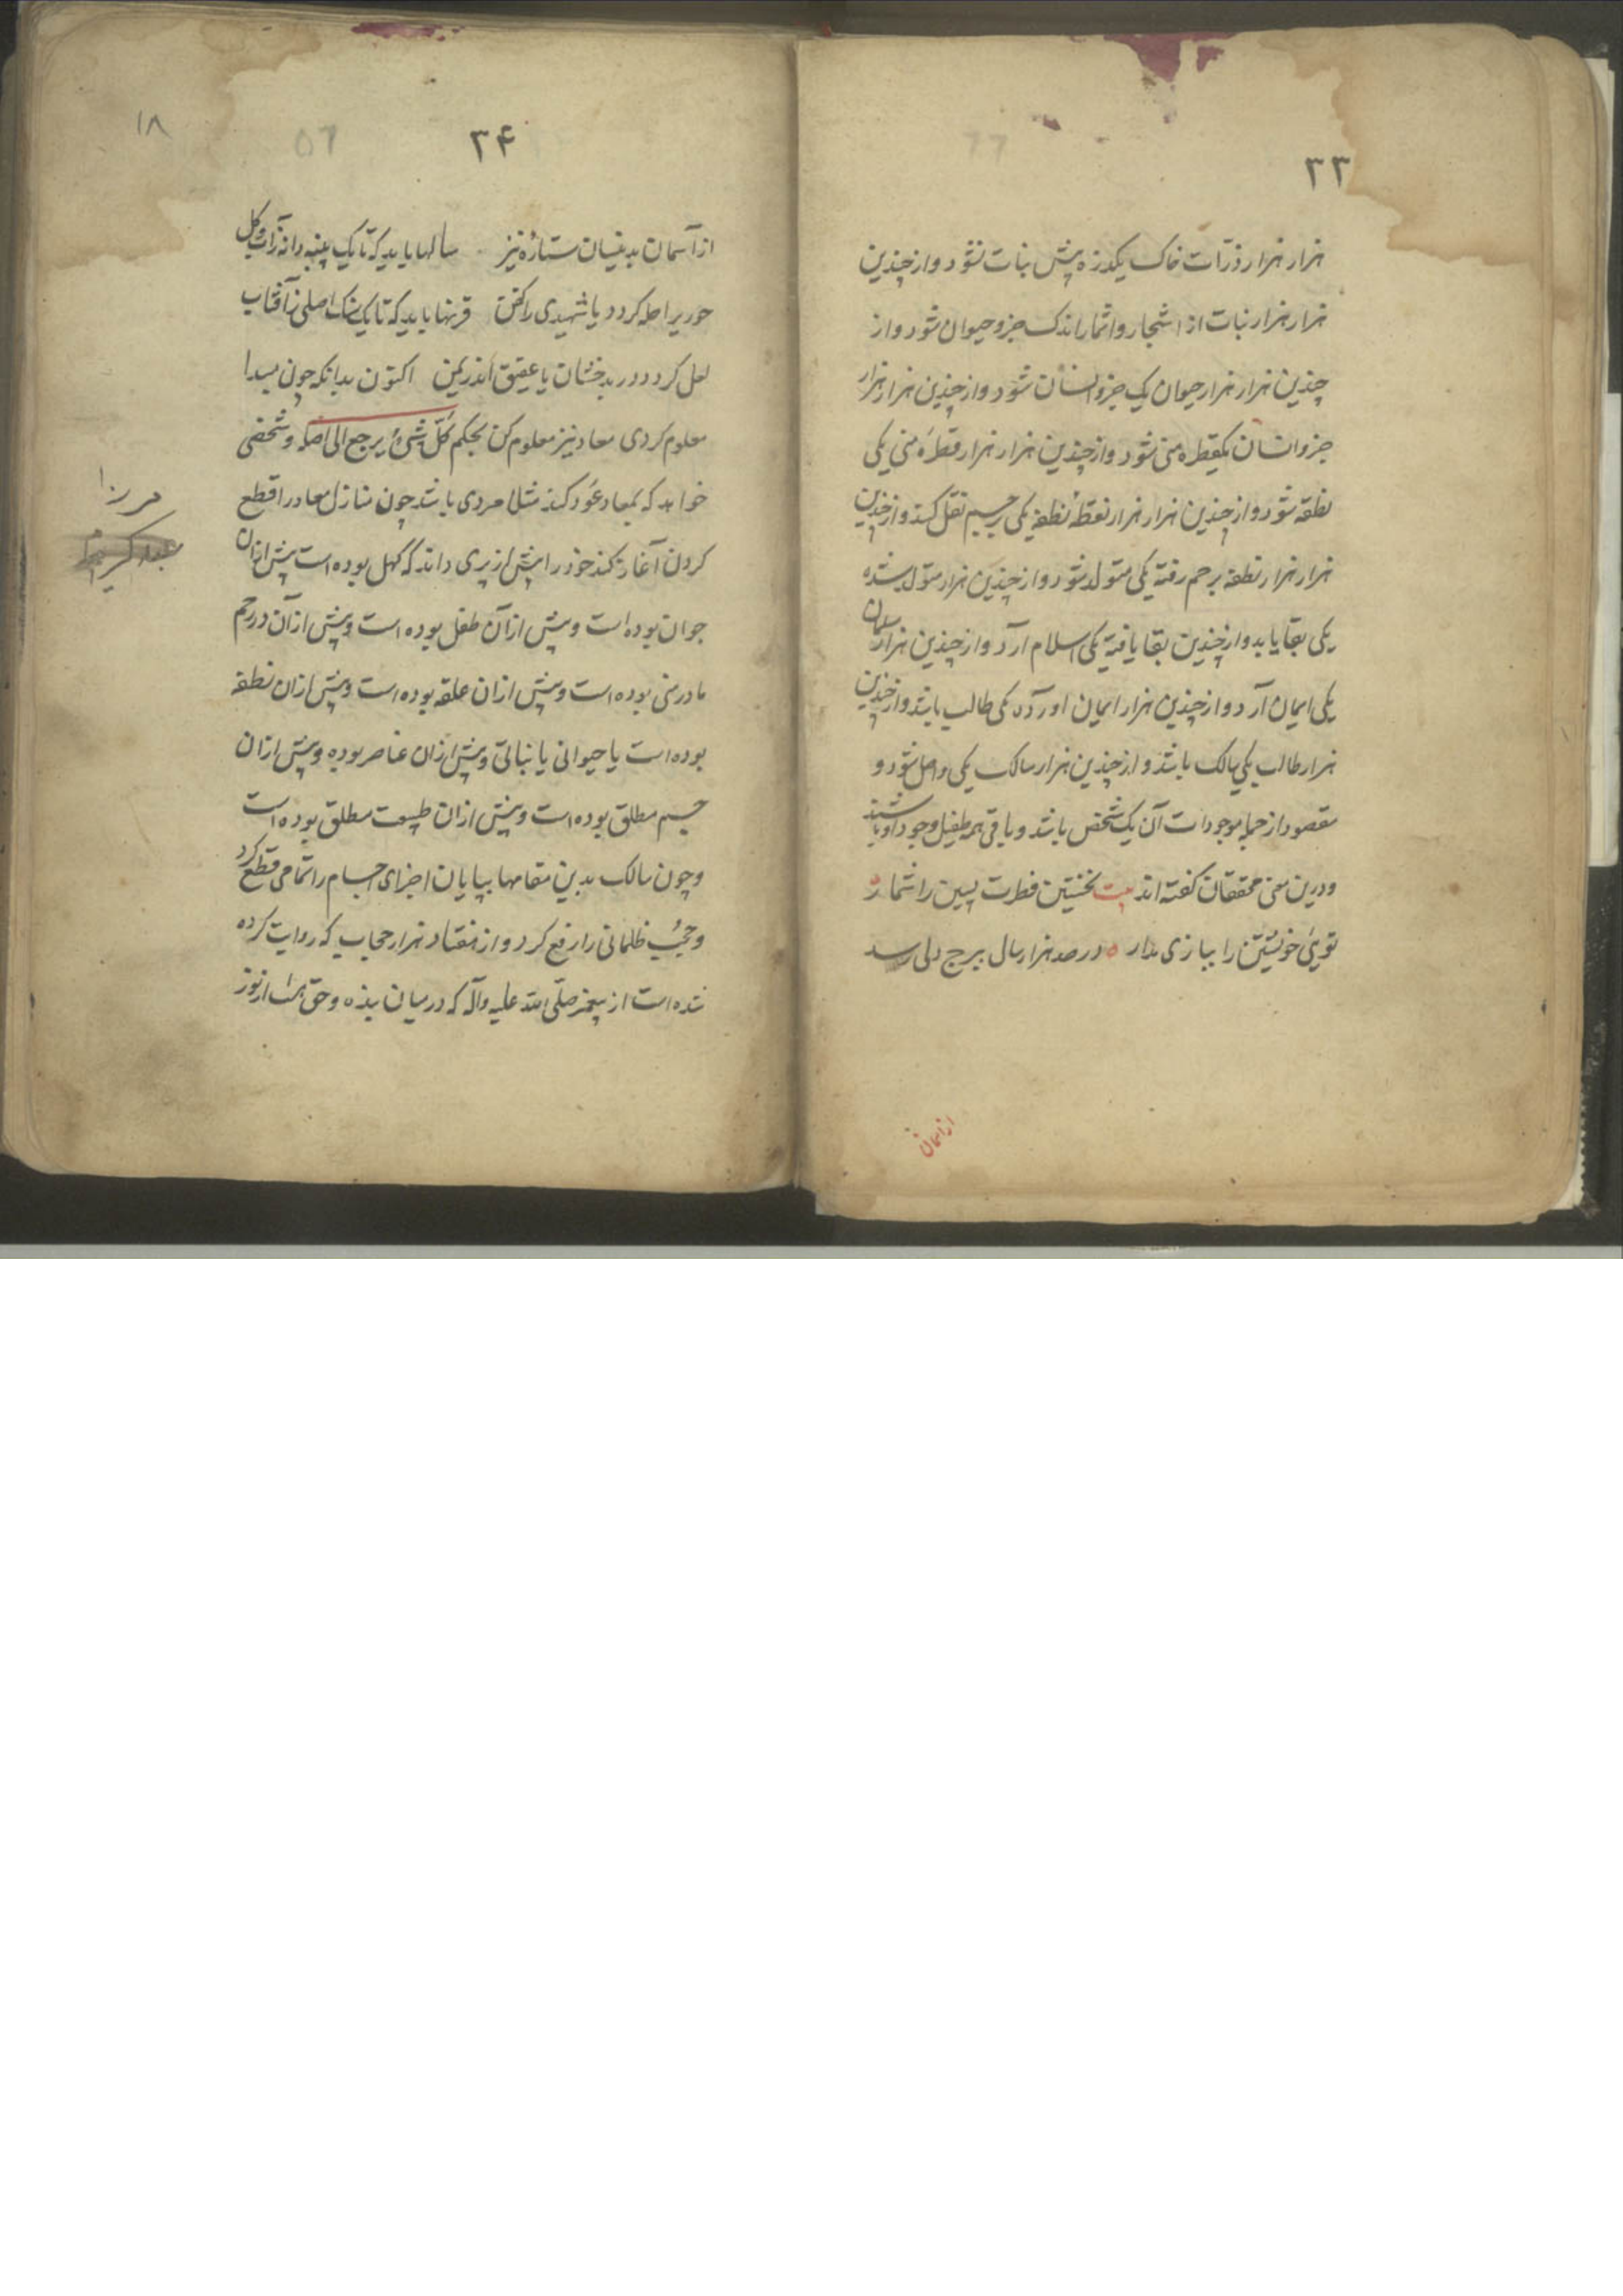 ۳۳
هزار هزار ذرّات خاک یکذره پیش نبات نشود و از چندین
هزار هزار نبات از اشجار و اثمار اندک جزو حیوان شود و از
چندین هزار هزار حیوان یک جزو انسان شود و از چندین هزار هزار
جزو انسان یکقطره منی شود و از چندین هزار هزار قطرهٔ منی یکی
نطفه شود و از چندین هزار هزار نقطهٔ نطفه یکی برحم نقل کند و از چندین
هزار هزار نطفه برحم رفته یکی متولد شود و از چندین هزار متولد شده
یکی بقا یابد و از چندین بقا یافته یکی اسلام آرد و از چندین هزار مسلمان
یکی ایمان آرد و از چندین هزار ایمان اورده یکی طالب باشد و از چندین
هزار طالب یکی سالک باشد و از چندین هزار سالک یکی واصل شود و
مقصود از جمله موجودات آن یک شخص باشد و باقی همه طفیل وجود او باشند
و درین معنی محققان گفته‌اند بیت نخستین فطرت پسین را شمار
تویی خویشتن را ببازی مدار در صد هزار سال ببرج دلی رسد
از اسمان
۳۴
۱۸
از آسمان بدینسان ستاره نیز سالها باید که تا یک پنبه دانه ز آب و گل
حوریرا حله گردد یا شهیدی را کفن قرنها باید که تا یک سنک اصلی ز آفتاب
لعل گردد در بدخشان یا عقیق اندر یمن اکنون بدانکه چون مبدا
معلوم کردی معاد نیز معلوم کن بحکم کلّ شیءٍ یرجع الی اصله و شخصی
خواهد که بمعاد عَود کند مثلا مردی باشد چون منازل معاد را قطع
کردن آغاز کند خود را پیش از پیری داند که کهل بوده است پیش ازان
جوان بوده است و پیش از آن طفل بوده است و پیش از آن در رحم
مادر منی بوده است و پیش ازان علقه بوده است و پیش ازان نطفه
بوده است یا حیوانی یا نباتی و پیش ازان عناصر بوده و پیش ازان
جسم مطلق بوده است و پیش ازان طبیعت مطلق بوده است
و چون سالک بدین مقامها بپایان اجزای اجسام را تمامی قطع کرد
و حجُب ظلمانی را رفع کرد و از هفتاد هزار حجاب که روایت کرده
شده است از پیغمبر صلّی الله علیه وآله که در میان بنده و حق است از نور
مرزا